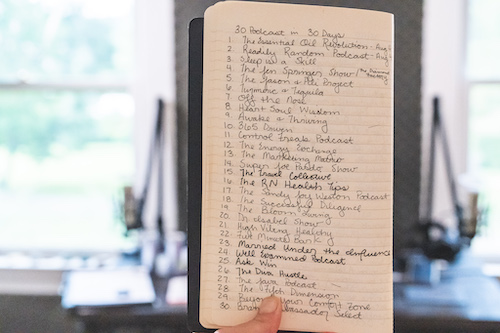 30 Podcast in 30 Days
1. The Essential Oil Revolution - Aug
2. Readily Random Podcast - Aug
3. Sleep is a Skill
4. The Jen Springer Show (The
5. The Jason & Project
6. Turmeric & Tequila
7. Off the Nose
8. Heart Soul Wisdom
9. Awake & Thriving
10. 365 Driven
11. Control Freaks Podcast
12. The Energy Exchange
13. The Marketing Matrix
14. Super Joe Pardo Show
15. The Travel Collective
16. The RN Health Tips
17. The Sandy Joy Weston Podcast
18. The Successful Diligence
19. The Bloom Living
20. Show
21. High Viking Healthy
22. Five Minute Bank
23. Married Under the Influence
24. Well Examined Podcast
25. Ask Win
26. The Diva Hustle
27. The Java Podcast
28. The Fifth Dimension
29. your Comfort Zone
30. Ambassador Select